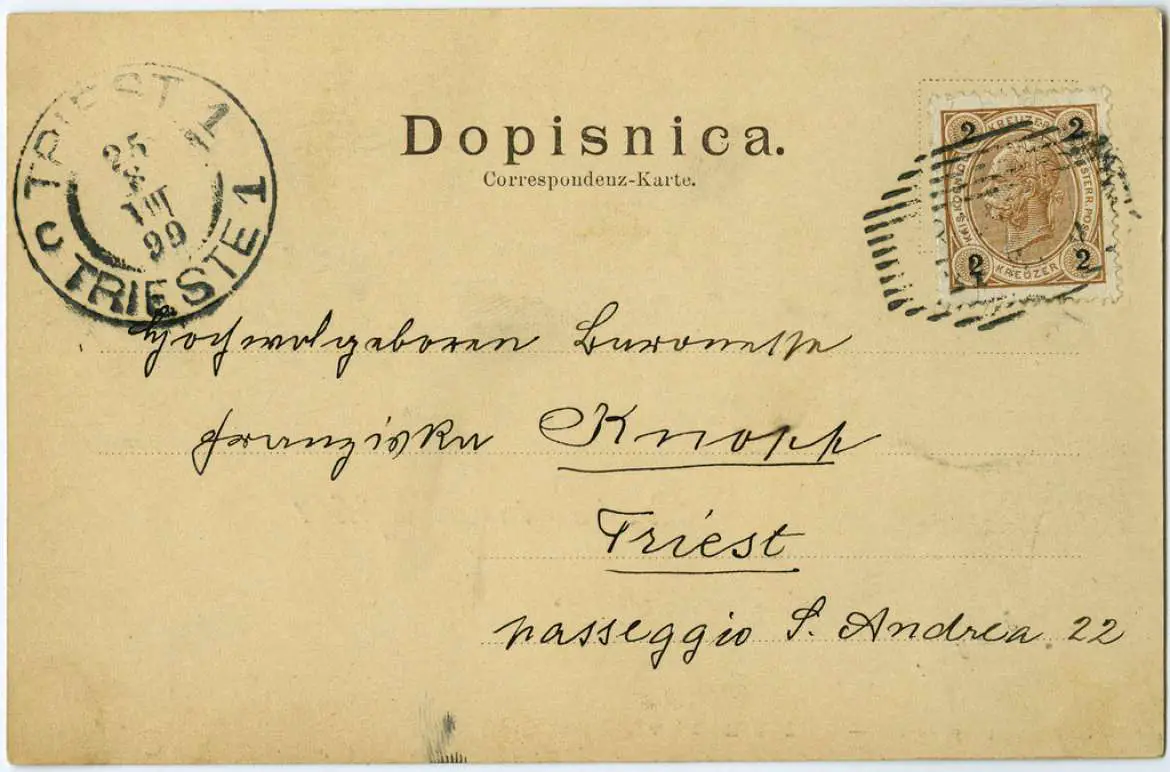 Dopisnica.
Correspondenz-Karte.
TRIEST 1
25
8
VIII
99
C TRIESTE 1
2 KREUZER 2
KREUZER
2 2
Hochwolgeboren Baronesse
Franziska Knopp
Triest
passeggio S. Andrea 22